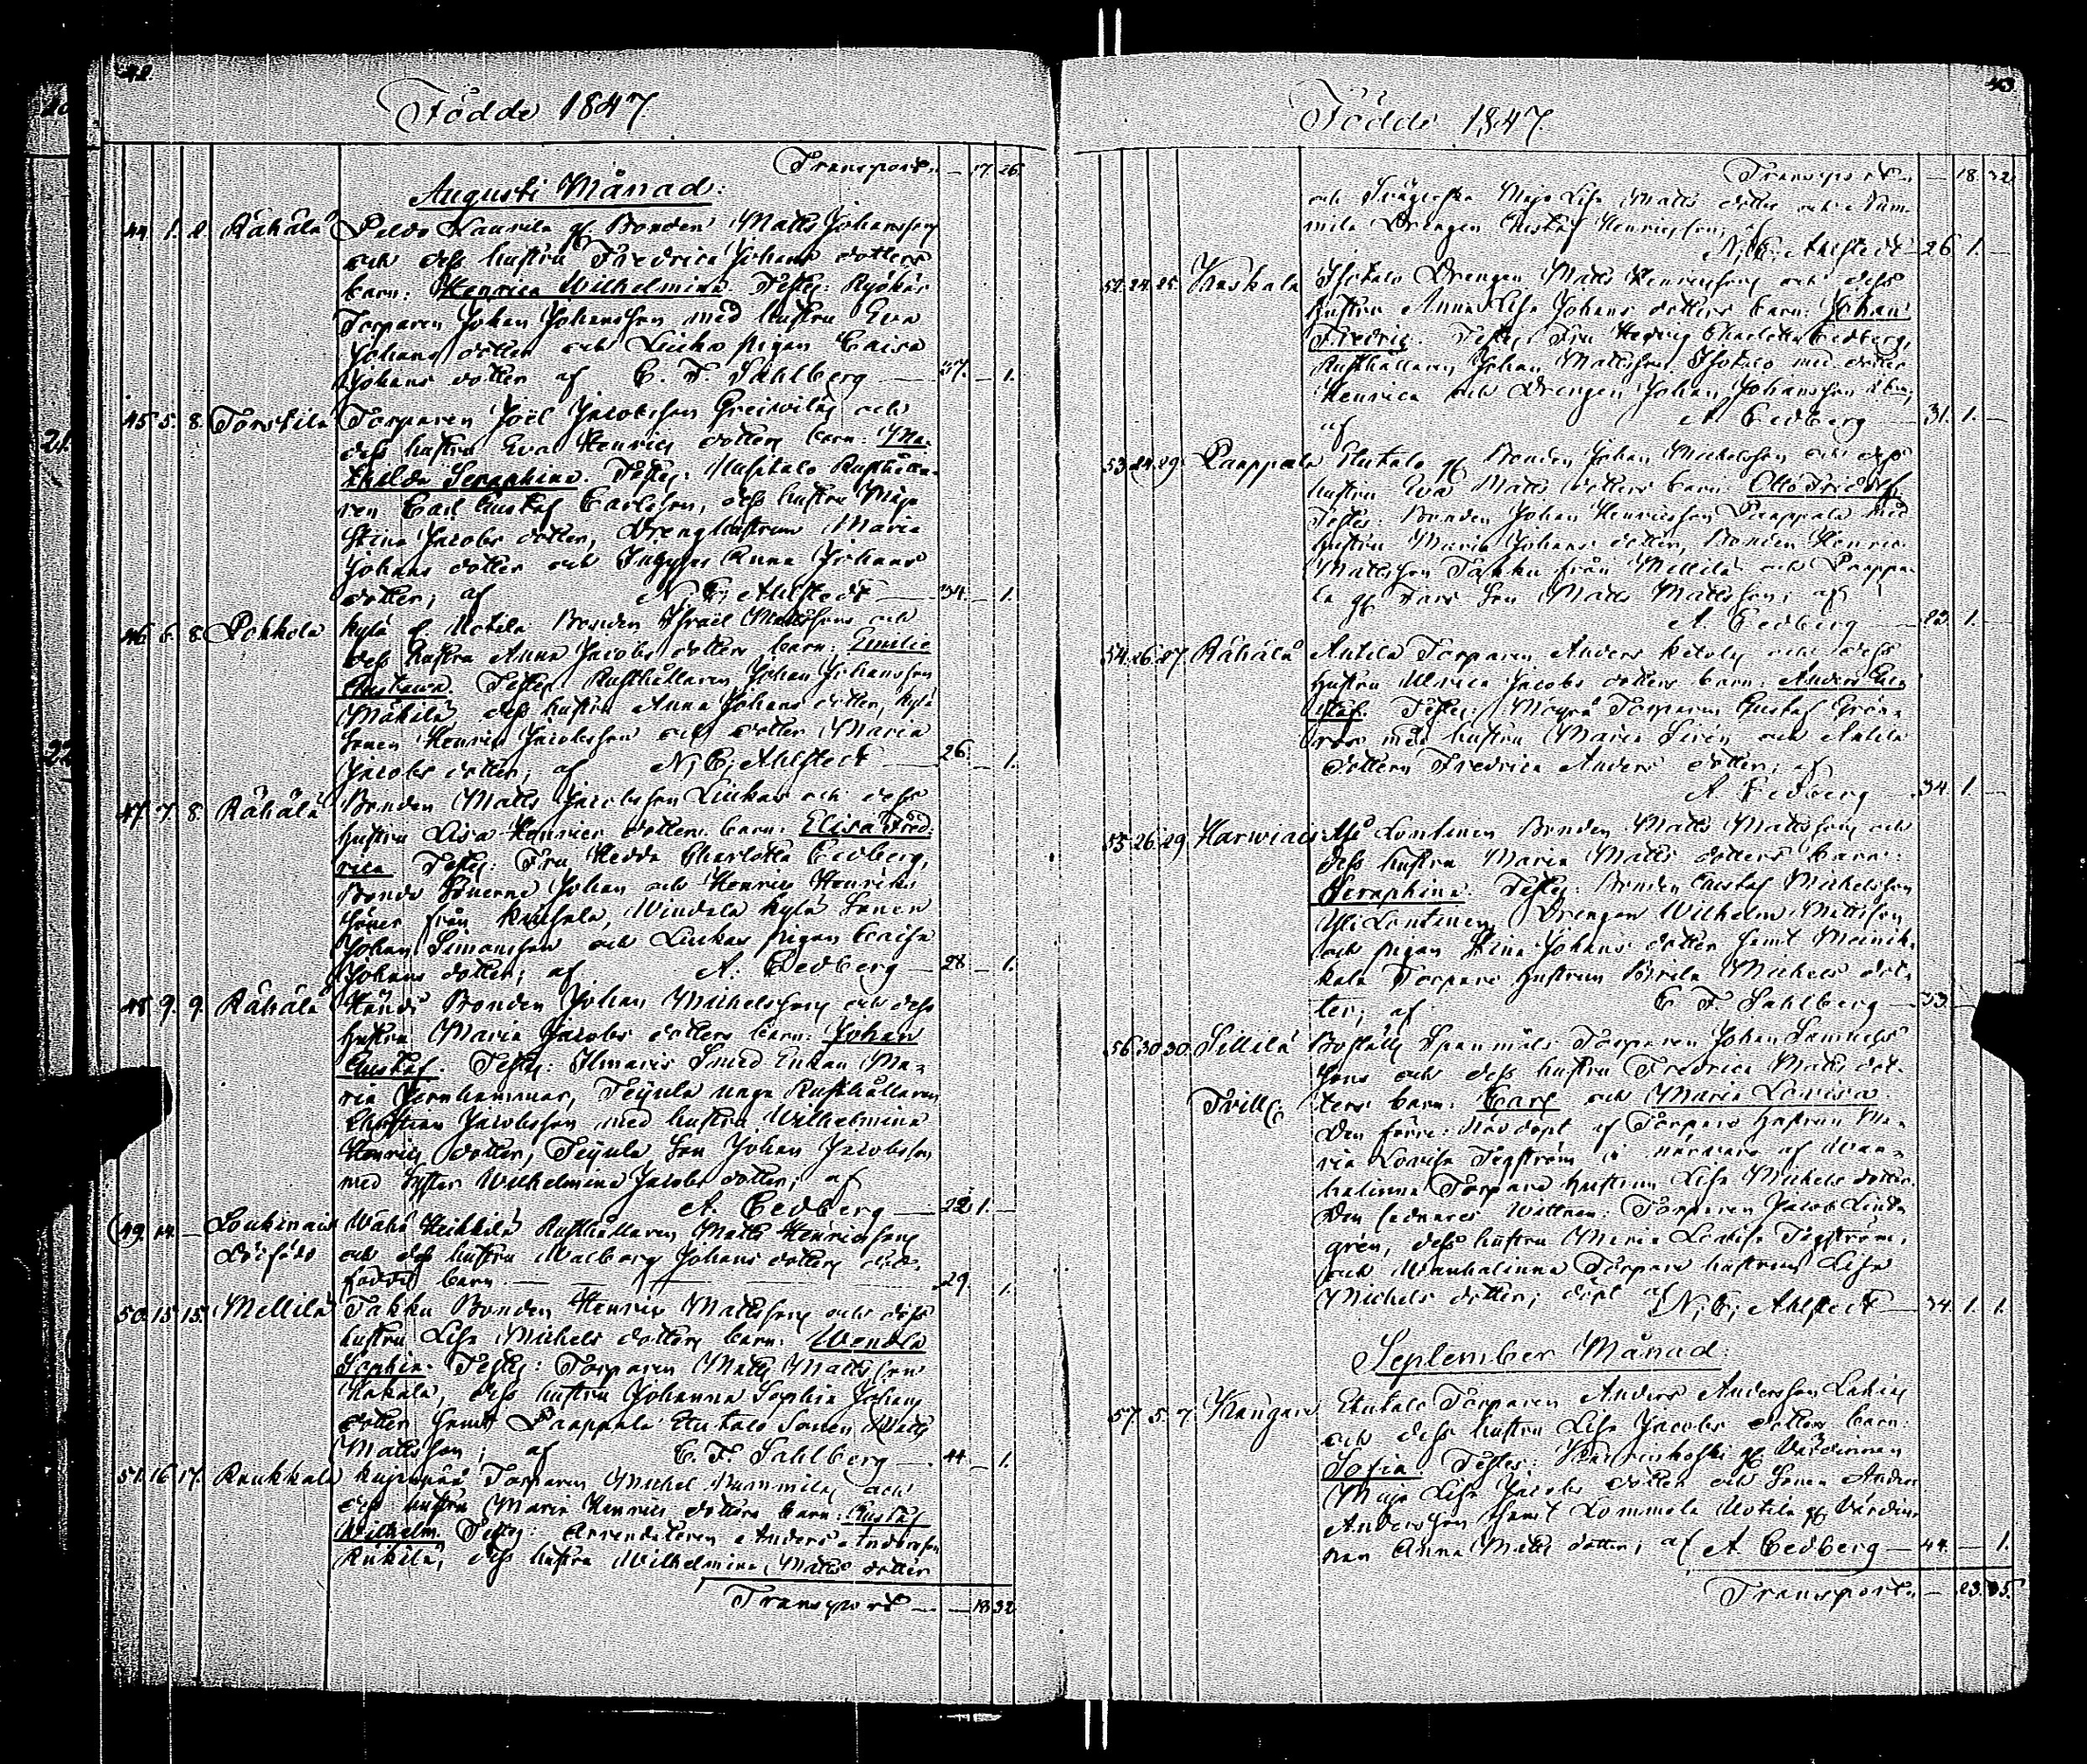 42.
Födde 1847.
Transport. — 17. 26.
Augusti Månad:
44. 1. 2. Rähälä Peldo Laurila gd Bonden Matts Johansson
och dess hustru Fredrica Johans dotters
barn: Henrica Wilhelmina. Test:
Torparen Johan Johansson med hustru Eva
Johans dotter och Liuko pigan Caisa
Johans dotter af C. F. Sahlberg — 37. — 1.
45. 5. 8. Torskila Torparen Joël Jacobsson och
dess hustru Eva Henrics dotters barn: Ma-
thilda Seraphina. Test: Rusthålla-
ren Carl Gustaf Carlsson, dess hustru Maja
Stina Jacobs dotter, Dreng hustrun Maria
Johans dotter och Anna Johans
dotter; af N. C. Ahlstedt — 34. — 1.
46. 6. 8. Pohkola Kylä Uotila Bonden Israël Mattssons och
dess hustru Anna Jacobs dotters barn: Emilie
Gustawa. Test: Rusthållaren Johan Johansson
Mähilä, dess hustru Anna Johans dotter, Kylä
Sonen Henric Jacobsson och dotter Maria
Jacobs dotter; af N. C. Ahlstedt — 26. — 1.
47. 7. 8. Rähälä Bonden Matts Jacobsson Liukas och dess
hustru Lisa Henrics dotters barn: Elisa Fred-
rica. Test: Fru Hedda Charlotta Cedberg,
Bonde Sönerne Johan och Henric Henriks
söner från, Windala Kylä Sonen
Johan Simonsson och Liukas pigan Caisa
Johans dotter; af A. Cedberg — 28 — 1.
48. 9. 9. Rähälä Händi Bonden Johan Michelssons och dess
hustru Maria Jacobs dotters barn: Johan
Gustaf. Test: Ilmaris Smed Enkan Ma-
ria Jernhammar, Teijula unga Rusthållaren
Christian Jacobsson med hustru Wilhelmina
Henrics dotter, Teijula Son Johan Jacobsson
med Syster Wilhelmina Jacobs dotter, af
A. Cedberg — 22 1. —
49. 14. — Loukinais Wähä Heikkilä Rusthållaren Matts Henricssons
och dess hustru Walborg Johans dotters död-
född barn. — 29 1.
50. 15. 15. Mellilä Takku Bonden Henric Mattssons och dess
hustru Lisa Michels dotters barn: Wendla
Sophia. Test: Torparen Matts Mattsson
Hakala, dess hustru Johanna Sophia Johans
dotter samt Paappala Sonen Matts
Mattsson; af C. F. Sahlberg — 44. — 1.
51. 16. 17. Raukkala Torparen Michel och
dess hustru Maria Henrics dotters barn: Gustaf
Wilhelm. Test: Arrendatoren Anders Andersson
dess hustru Wilhelmina Matts dotter
Transport — — 18 32
43
Födde 1847.
Transport — 18. 32
och Maja Lisa Matts dotter och Num-
mila Drengen Gustaf Henricsson; af
N. C. Ahlstedt — 26 1. —
52. 24. 25. Kaskala Isotalo Drengen Matts Henricssons och dess
hustru Anna Lisa Johans dotters barn: Johan
Fredric. Test: Fru Hedvig Charlotta Cedberg,
Rusthållaren Johan Mattsson Isotalo med dotter
Henrica och Drengen Johan Johansson
af A. Cedberg — 31. 1. —
53. 24. 29. Paappala gd Bonden Johan Michelsson och dess
hustru Eva Matts dotters barn: Otto Fridolf.
Testes: Bonden Johan Henricsson Paappala med
hustru Maria Johans dotter, Bonden Henric
Mattsson Takku från Mellilä och Paappa-
la gd Fars Son Matts Mattsson; af
A. Cedberg — 23. 1. —
54. 26. 27. Rähälä Antila Torparen Anders och dess
hustru Ulrica Jacobs dotters barn: Anders Gu-
staf. Test: Torparen Gustaf Grön-
ros med hustru Maria Siren och Antila
dottern Fredrica Anders dotter; af
A. Cedberg — 34. 1. —
55. 26. 29. Harwiais Ali Lontinen Bonden Matts Mattssons och
dess hustru Maria Matts dotters barn:
Seraphina. Test: Bonden Gustaf Michelsson
Lontinen, Drengen Wilhelm Mattsson
och pigan Stina Johans dotter samt Meinik-
kala Torpare hustrun Brita Michels dot-
ter; af C. F. Sahlberg — 33. —
56. 30. 30. Sillilä Torparen Johan Samuels
sons och dess hustru Fredrica Matts dot-
Tvill. ters barn: Carl och Maria Lovisa.
Den förre: Nöd döpt af Torpare hustrun Ma-
ria Lovisa Tegström i närvaro af Wan-
halinna Torpare hustrun Lisa Michels dotter.
Den sednares Wittnen: Torparen Jacob Lind-
grén, dess hustru Maria Lovisa Tegström,
och Wanhalinna Torpare hustrun Lisa
Michels dotter; döpt af N. C. Ahlstedt — 34. 1. 1.
September Månad:
57. 5. 7. Kangare Torparen Anders Andersson
och dess hustru Lisa Jacobs dotters barn:
Sofia. Testes: gd Värdinnan
Maja Lisa Jacobs dotter och Sonen Anders
Andersson samt Lommola Uotila gd Värdin-
nan Anna Matts dotter; af A. Cedberg — 44. — 1.
Transport. — 23. 35.